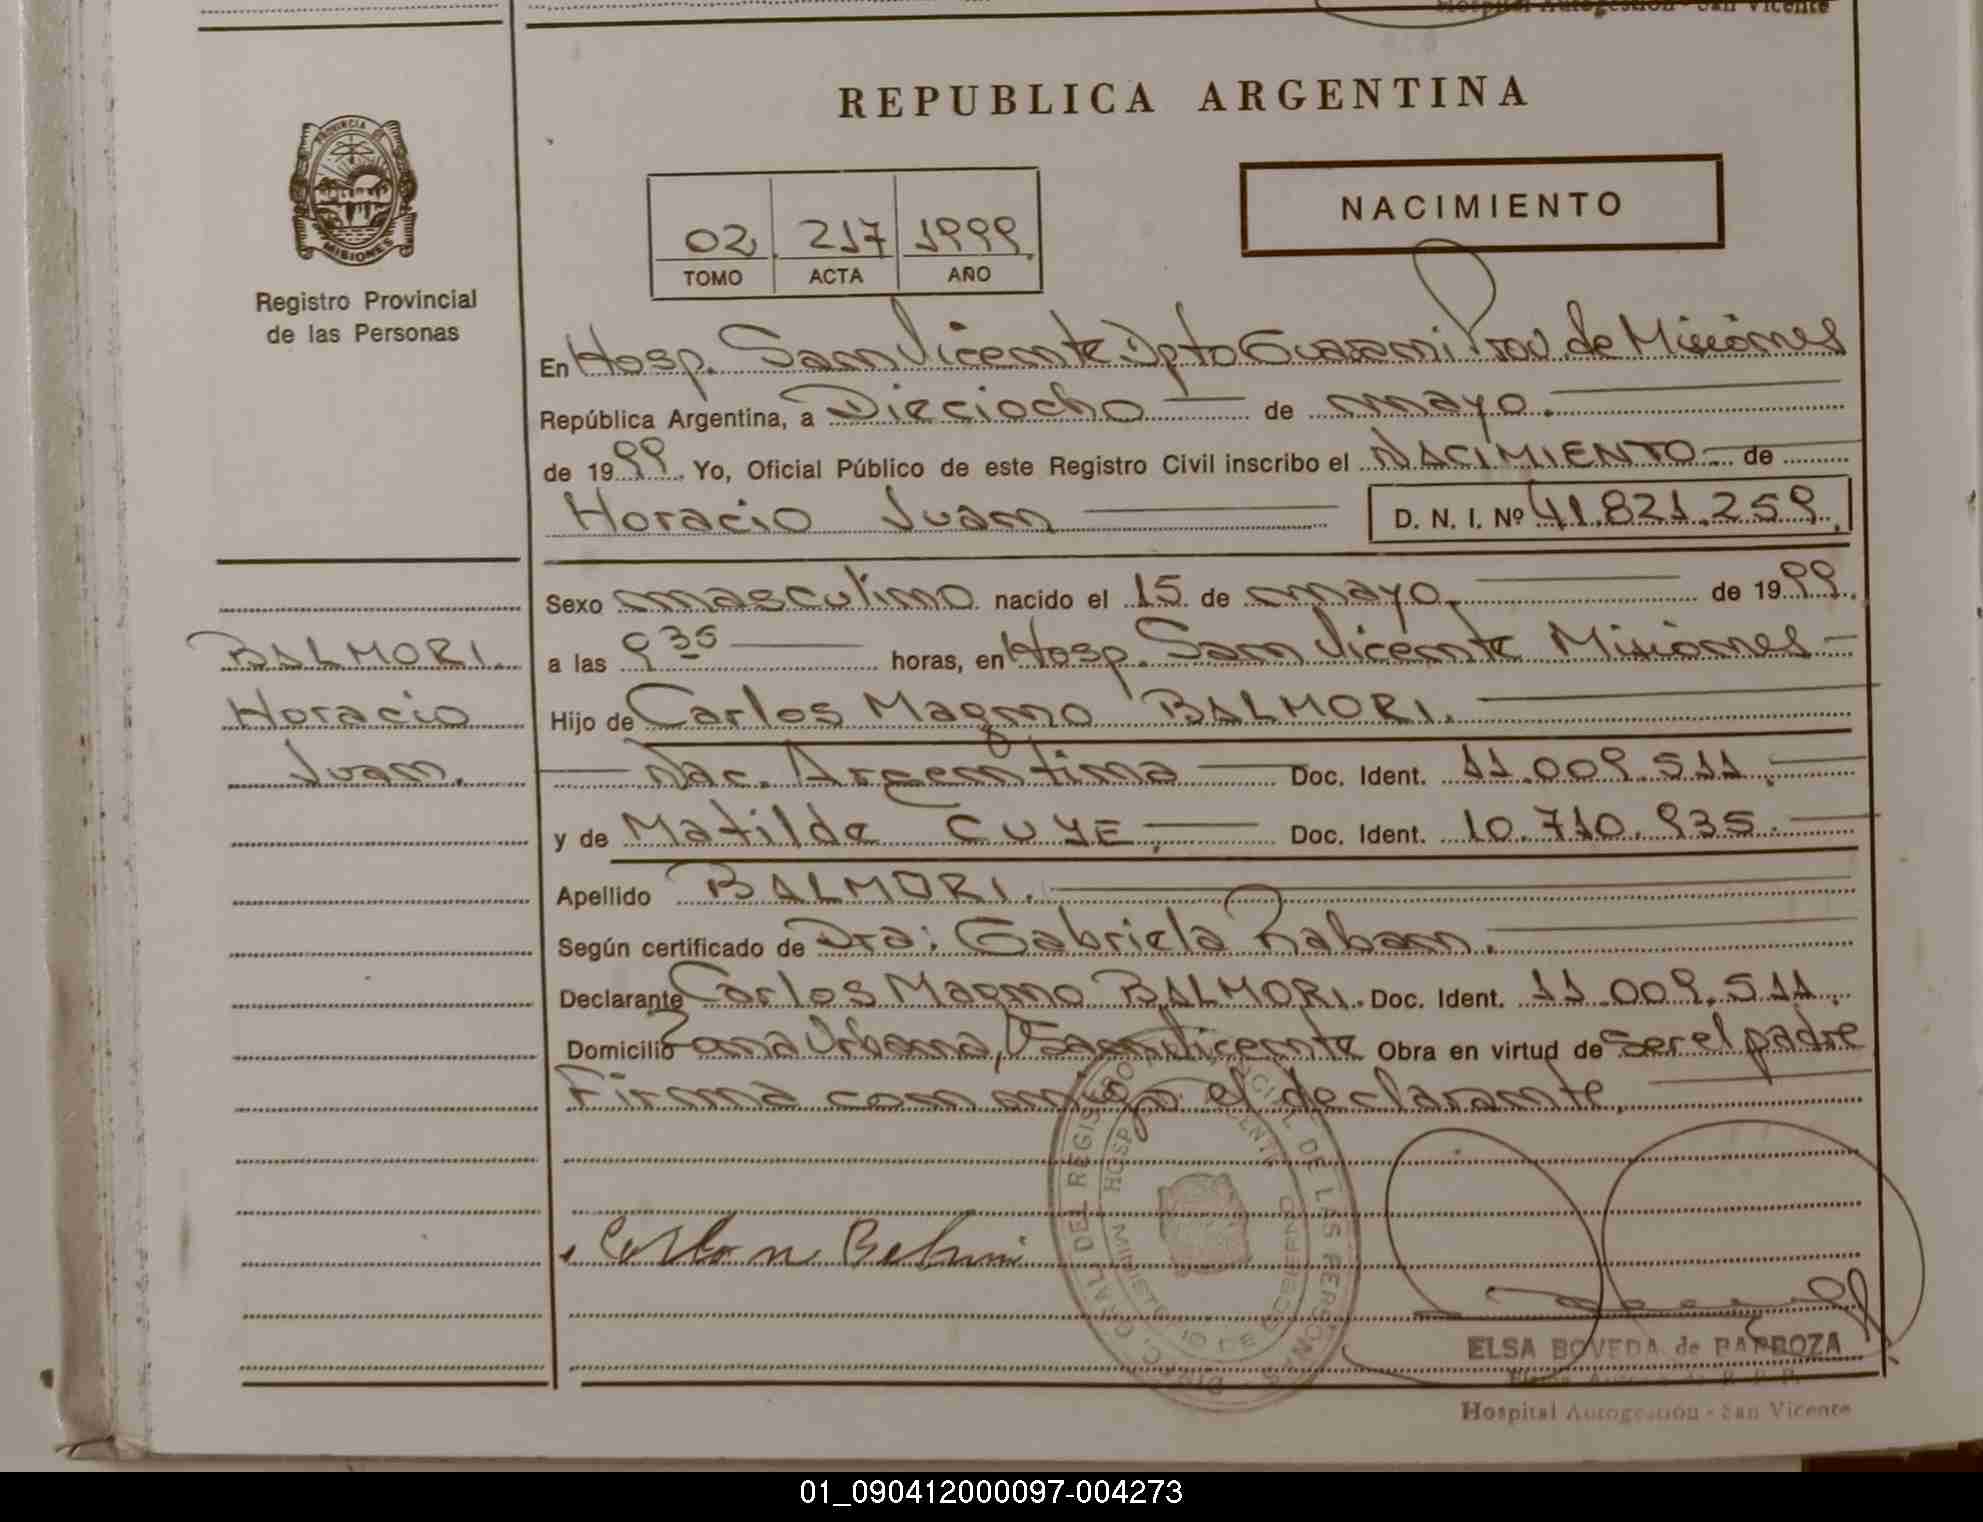 Hospital Autogestión - San Vicente
REPUBLICA ARGENTINA
PROVINCIA DE
MISIONES
Registro Provincial
de las Personas
02 217 1999
TOMO ACTA AÑO
NACIMIENTO
En Hosp. San Vicente Dpto Guarani Prov. de Misiones
República Argentina, a Dieciocho de mayo.
de 1999. Yo, Oficial Público de este Registro Civil inscribo el NACIMIENTO de
Horacio Juan D. N. I. Nº 41.821.259.
Sexo masculino nacido el 15 de mayo. de 1999.
a las 9 35 horas, en Hosp. San Vicente Misiones
Hijo de Carlos Magno BALMORI.
Nac. Argentina Doc. Ident. 11.009.511.
y de Matilde CUYE. Doc. Ident. 10.710.935.
Apellido BALMORI.
Según certificado de Dra: Gabriela Raban.
Declarante Carlos Magno BALMORI. Doc. Ident. 11.009.511.
Domicilio Zona Urbana, San Vicente Obra en virtud de ser el padre
Firma conmigo el declarante.
BALMORI.
Horacio
Juan.
DEL REGISTRO PROVINCIAL DE LAS PERSONAS
HOSP. MINISTERIO DE GOBIERNO
ELSA BOVEDA de BARBOZA
Hospital Autogestión - San Vicente
01_090412000097-004273